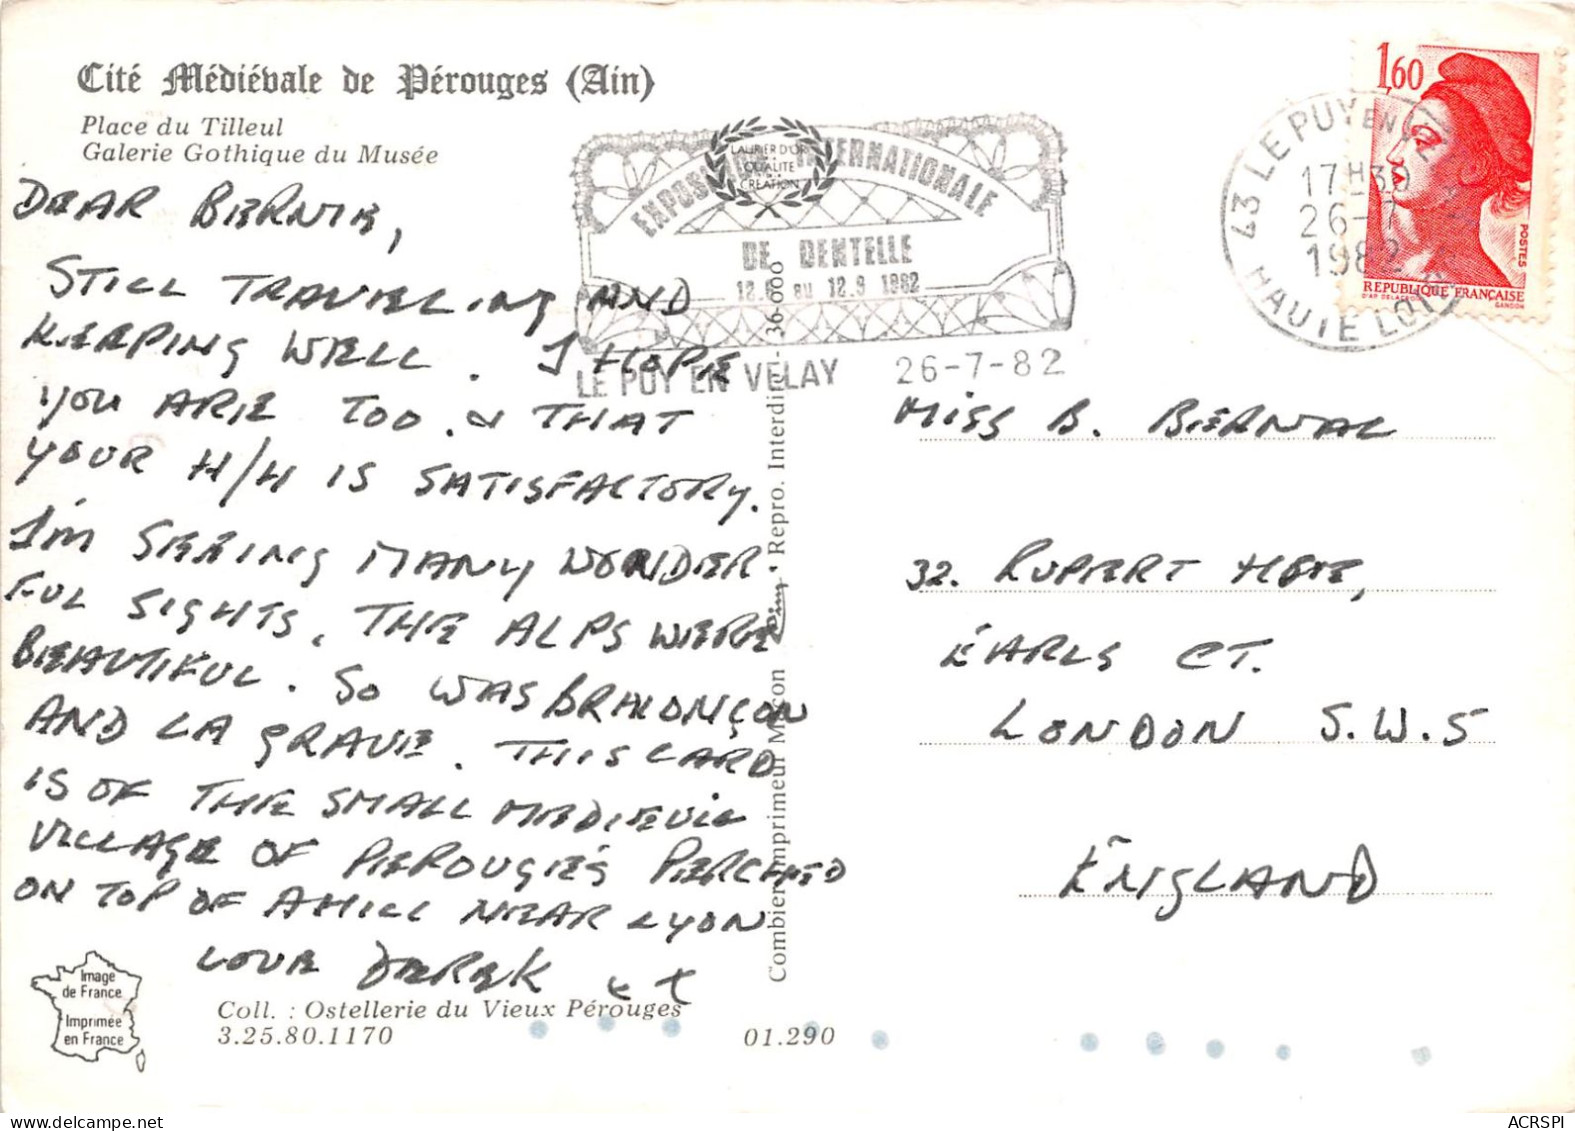 Cité Médiévale de Pérouges (Ain)
Place du Tilleul
Galerie Gothique du Musée
DEAR BERNIE,
STILL TRAVELLING AND
KEEPING WELL. I HOPE
YOU ARE TOO. & THAT
YOUR H/H IS SATISFACTORY.
I'M SEEING MANY WONDER
FUL SIGHTS. THE ALPS WERE
BEAUTIFUL. SO WAS BRIANÇON
AND LA GRAVE. THIS CARD
IS OF THE SMALL MEDIEVIL
VILLAGE OF PEROUGES PERCHED
ON TOP OF A HILL NEAR LYON
LOVE DEREK x x
Coll. : Ostellerie du Vieux Pérouges
3.25.80.1170
01.290
Image
de France
Imprimée
en France
Combier Imprimeur Mâcon
Repro. Interdite - 36-000
LAURIER D'OR
QUALITÉ
CRÉATION
EXPOSITION INTERNATIONALE
DE DENTELLE
au 12.9 1982
LE PUY EN VELAY 26-7-82
43 LE PUY EN VELAY
17H30
26-7
1982
HAUTE LOIRE
1,60
POSTES
REPUBLIQUE FRANÇAISE
D'AP. DELACROIX
GANDON
MISS B. BERNAL
32. RUPERT HSE,
EARLS CT.
LONDON S.W.5
ENGLAND
ACRSPI